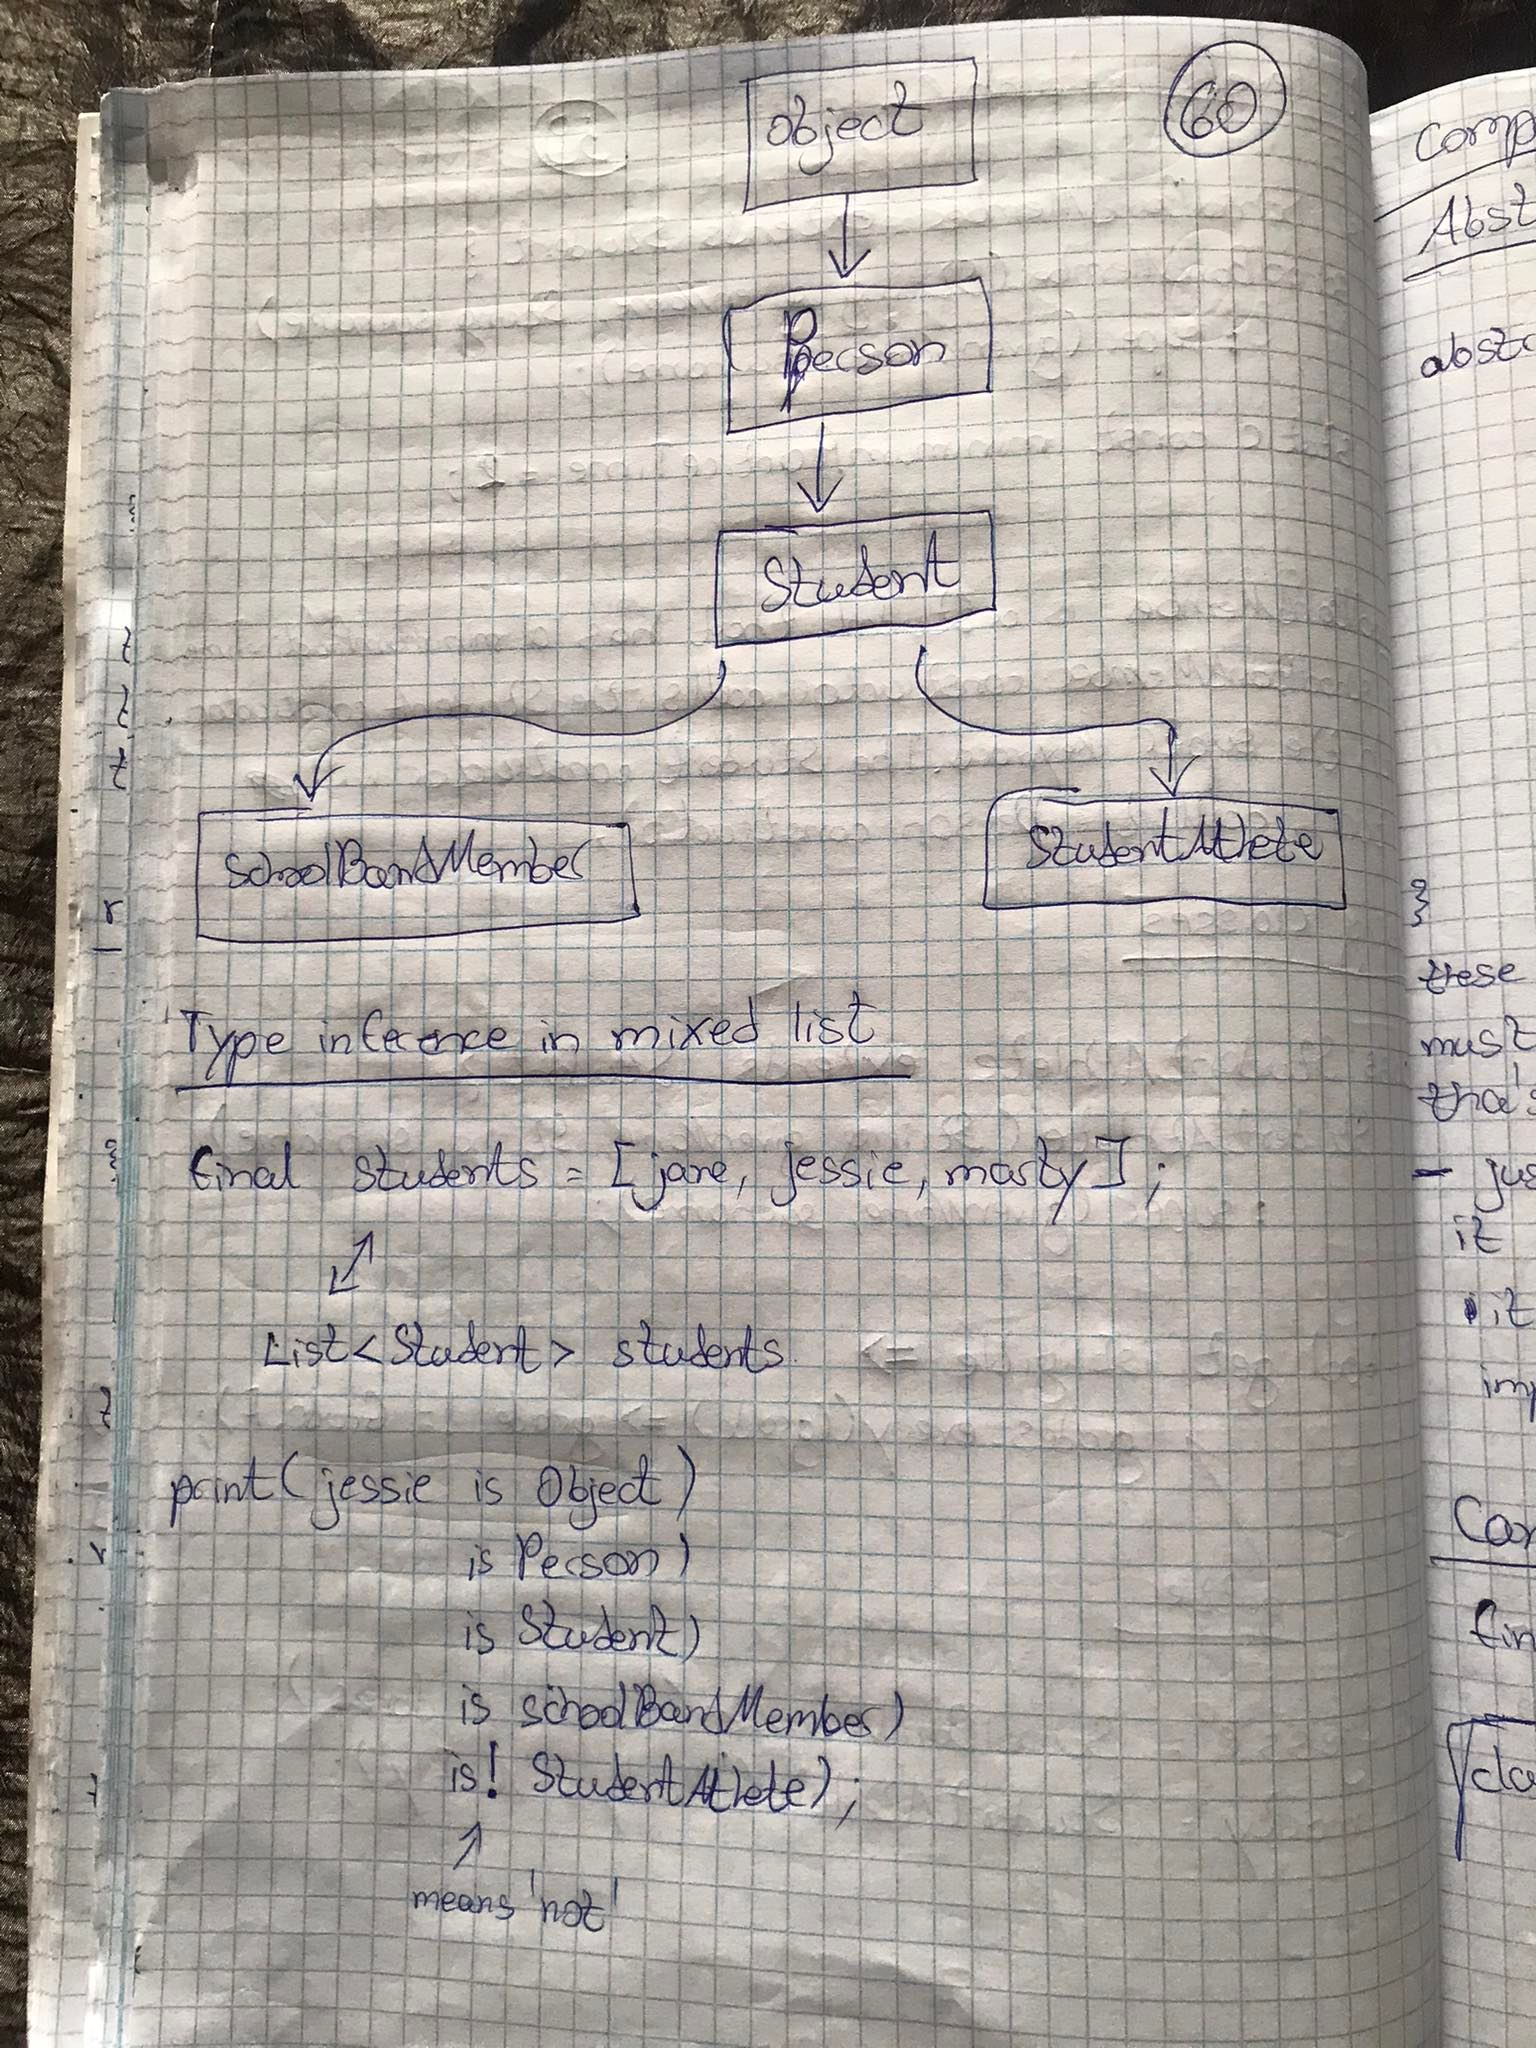 60
object
Person
Student
schoolBandMember
StudentAtlete
Type inference in mixed list
final students = [jane, jessie, marty];
List<Student> students
print(jessie is Object)
is Person)
is Student)
is schoolBandMember)
is! StudentAtlete);
means 'not'
comp
Abst
abstr
}
these
must
tha's
- jus
it
• it
imp
Con
fin
cla